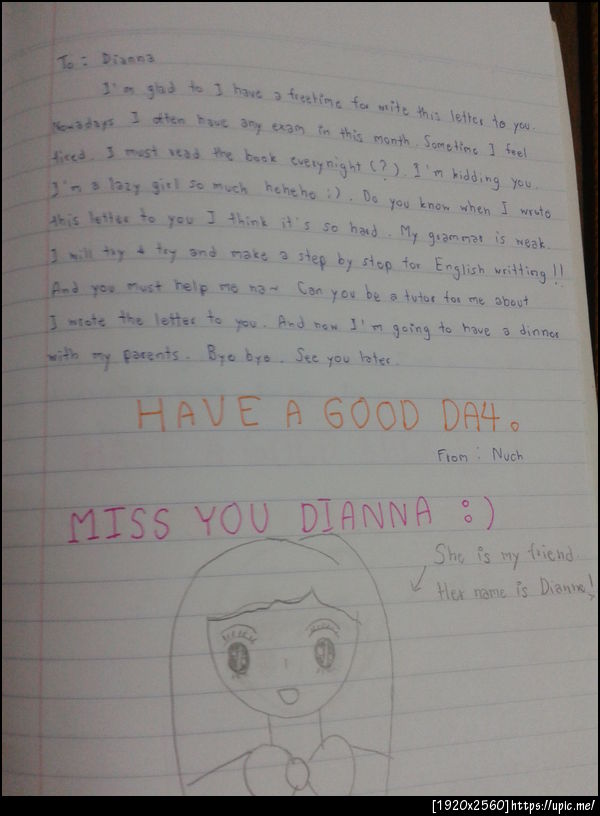 To : Dianna
I'm glad to I have a freetime for write this letter to you.
Nowadays I often have any exam in this month. Sometime I feel
tired. I must read the book everynight (?). I'm kidding you.
I'm a lazy girl so much hehehe :). Do you know when I wrote
this letter to you I think it's so hard. My grammar is weak.
I will try & try and make a step by stop for English writting!!
And you must help me na~ Can you be a tutor for me about
I wrote the letter to you. And now I'm going to have a dinner
with my parents. Bye bye. See you later.
HAVE A GOOD DAY.
From : Nuch
MISS YOU DIANNA :)
She is my friend.
Her name is Dianna!
[1920x2560]https://upic.me/